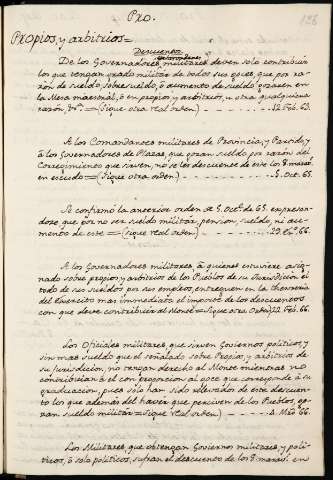 Pro.
186
Propios, y arbitrios =
Descuento
De los Governadores militares deven solo contribuir
los que tengan grado militar de todos sus goces, que por ra-
zón de sueldo, sobresueldo, ó aumento de sueldo gozaren en
la Mesa maestral, ó en propios y arbitrios, u otra qualquiera
razón, = (Sigue otra real orden) 12. Feb. 63.
A los Comandantes militares de Provincia, y Partido, y
á los Governadores de Plazas, que gozan sueldo por razón del
Corregimiento que sirven, no se les descuente de este los 8 marav.
en escudo = (Sigue otra orden.) 5. Oct. 65.
Se confirmó la anterior orden de 5. Oct.e de 65. expresan-
dose que por no ser sueldo militar, pension, sueldo, ni au-
mento de este = (sigue real orden) 29. En.o 66.
A los Governadores militares, á quienes estuviere asig-
nado sobre propios y arbitrios de los Pueblos de su Jurisdicion el
todo de sus sueldos por sus empleos, entreguen en la thesoreria
del Exercito mas inmediato el importe de los descuentos
con que deve contribuir al Monte = Sigue otra Orden) 22. Feb. 66.
Los Oficiales militares, que sirven Goviernos politicos, y
sin mas sueldo que el señalado sobre Propios, y arbitrios de
su Jurisdicion, no tengan derecho al Monte mientras no
contribuian á él con proporcion al goce que corresponde á su
graduacion, pues sólo han sido relevados de este descuen-
to los que además del haver que perciven de los Pueblos, go-
zan sueldo militar = sigue real orden) 4. Mar.o 66.
Los Militares, que obtengan Goviernos militares, y poli-
ticos, ó solo politicos, sufran el descuento de los 8 marav. en